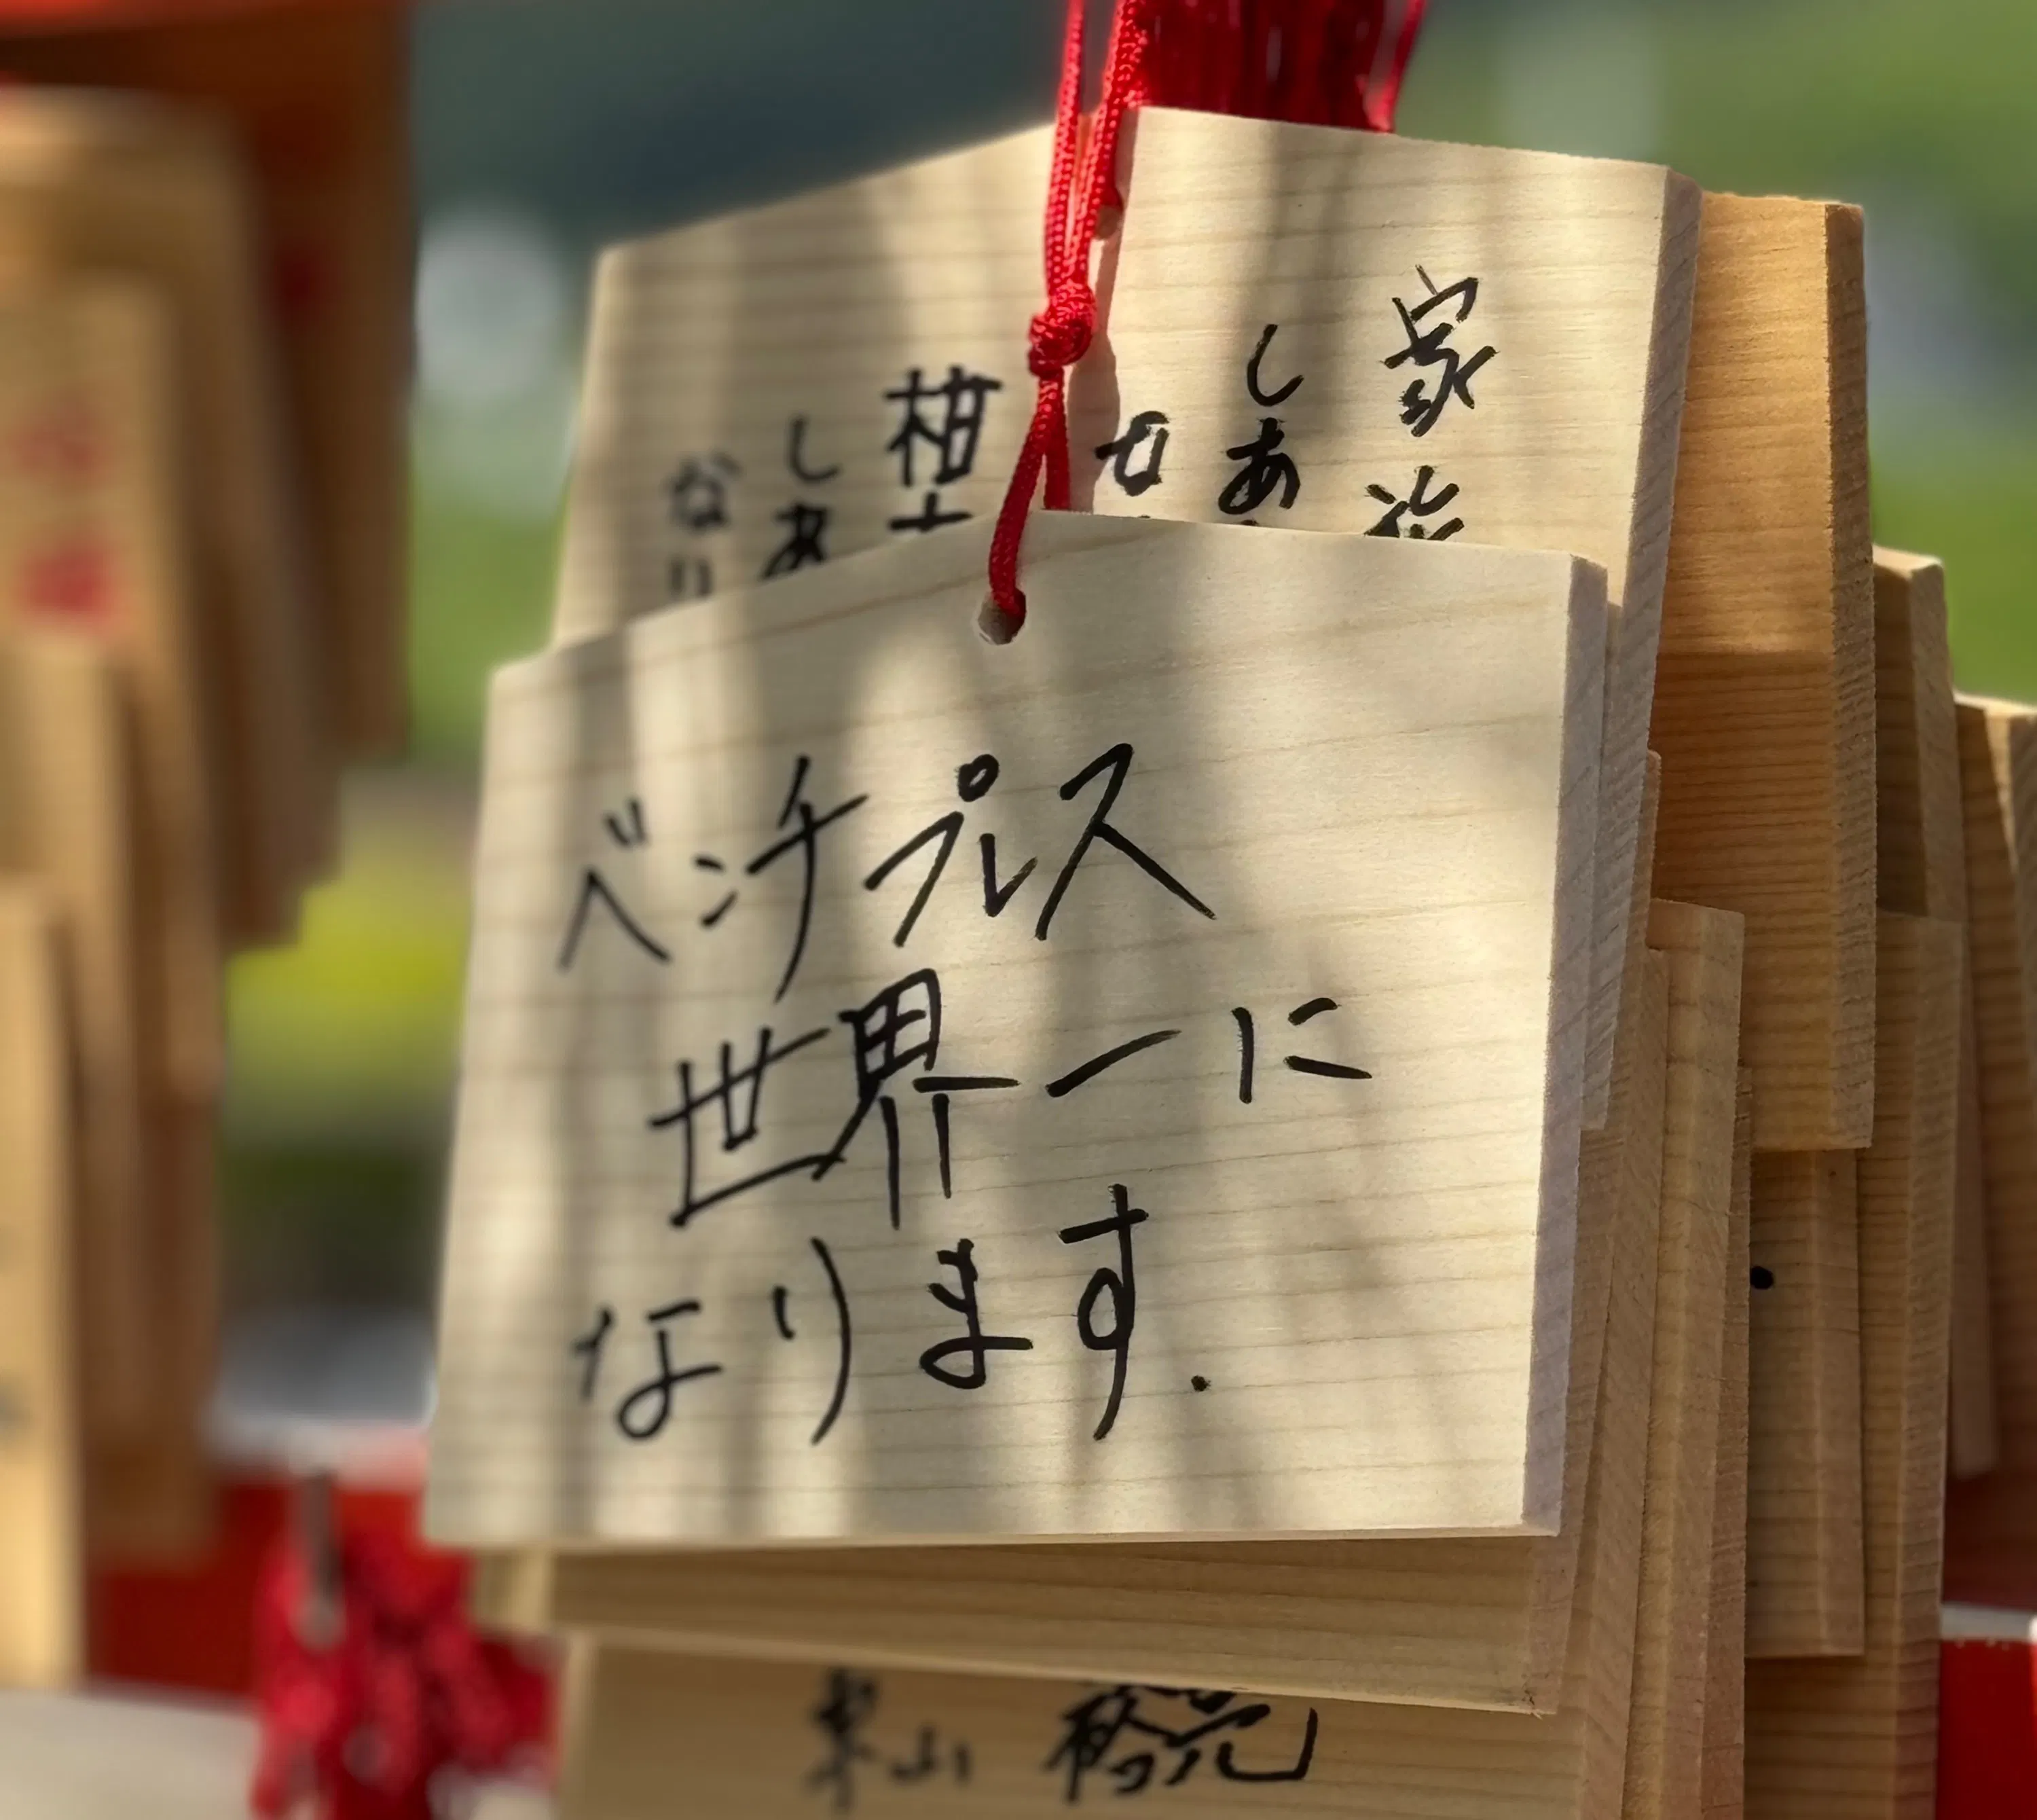 ベンチプレス
世界一に
なります.
家族
しあ
せ
しあ
なり